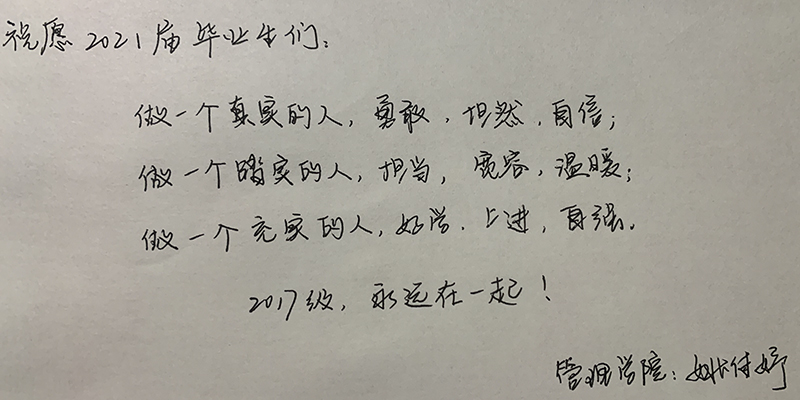 祝愿2021届毕业生们:
做一个真实的人,勇敢、坦然、自信;
做一个踏实的人,担当,宽容,温暖;
做一个充实的人,好学、上进,自强。
2017级,永远在一起!
管理学院:姚付妤